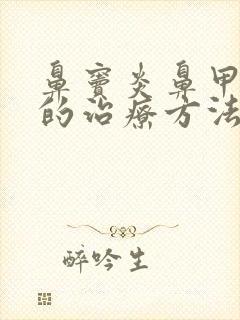 鼻窦炎鼻甲
的治疗方法
醉吟生